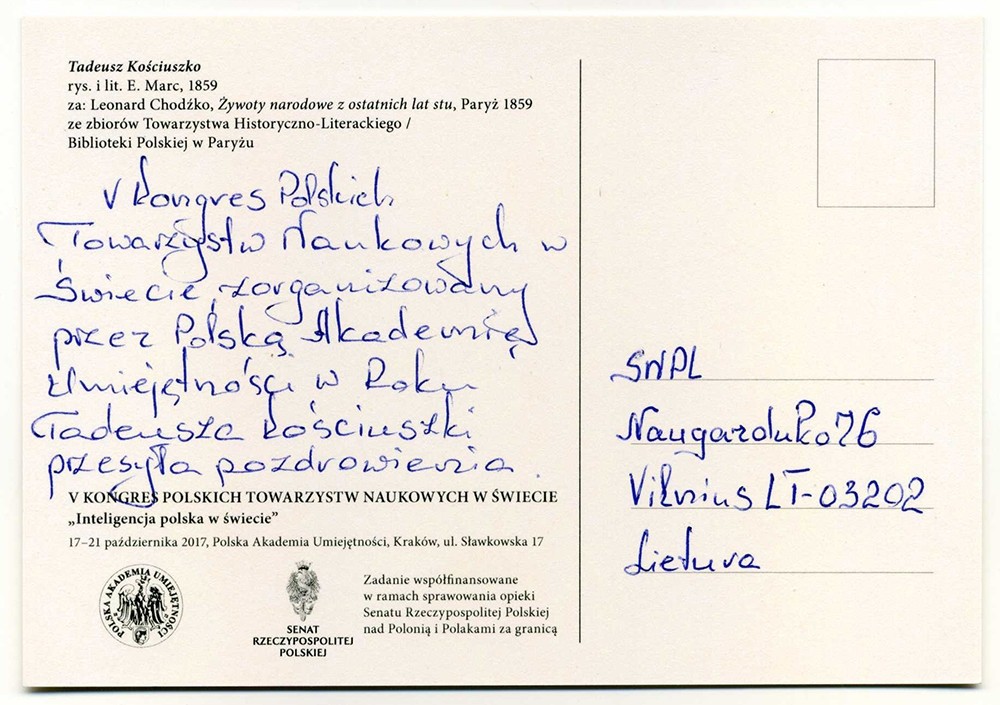 Tadeusz Kościuszko
rys. i lit. E. Marc, 1859
za: Leonard Chodźko, Żywoty narodowe z ostatnich lat stu, Paryż 1859
ze zbiorów Towarzystwa Historyczno-Literackiego /
Biblioteki Polskiej w Paryżu
V Kongres Polskich
Towarzystw Naukowych w
Świecie, zorganizowany
przez Polską Akademię
Umiejętności w Roku
Tadeusza Kościuszki
przesyła pozdrowienia.
V KONGRES POLSKICH TOWARZYSTW NAUKOWYCH W ŚWIECIE
„Inteligencja polska w świecie”
17–21 października 2017, Polska Akademia Umiejętności, Kraków, ul. Sławkowska 17
POLSKA AKADEMIA UMIEJĘTNOŚCI
SENAT
RZECZYPOSPOLITEJ
POLSKIEJ
Zadanie współfinansowane
w ramach sprawowania opieki
Senatu Rzeczypospolitej Polskiej
nad Polonią i Polakami za granicą
SNPL
Naugarduko 76
Vilnius LT-03202
Lietuva